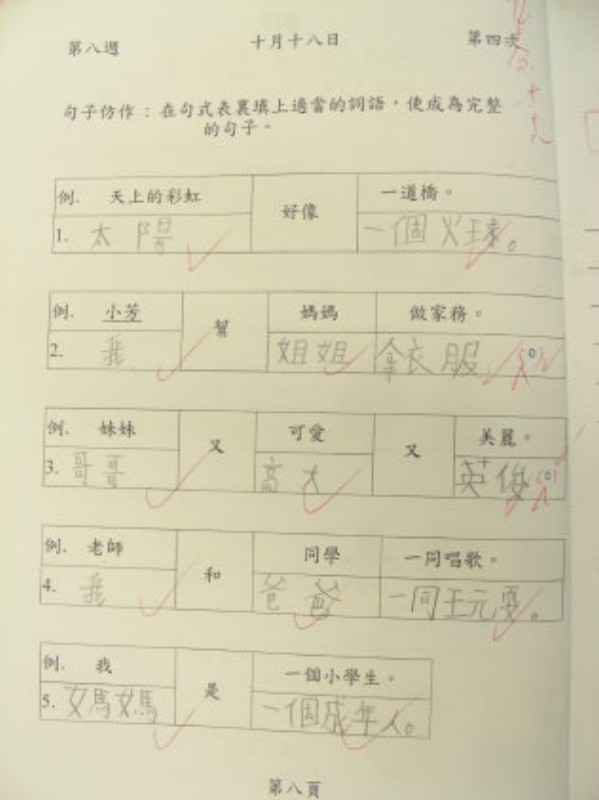 第八週 十月十八日 第四次
句子仿作：在句式表裏填上適當的詞語，使成為完整
的句子。
例. 天上的彩虹 好像 一道橋。
1. 太陽 一個火球。
例. 小芳 幫 媽媽 做家務。
2. 我 姐姐 拿衣服
例. 妹妹 又 可愛 又 美麗。
3. 哥哥 高大 英俊
例. 老師 和 同學 一同唱歌。
4. 我 爸爸 一同玩耍。
例. 我 是 一個小學生。
5. 媽媽 一個成年人。
第八頁